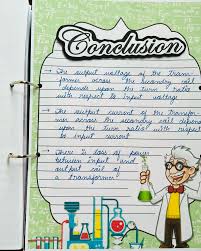 Conclusion
→ The output voltage of the Trans-
former across the secondary coil
depends upon the turn ratio
with respect to input voltage
→ The output current of the Transfor-
mer across the secondary coil depends
upon the turn ratio with respect
to input current
→ There is loss of power
between input and
output coil of
transformer